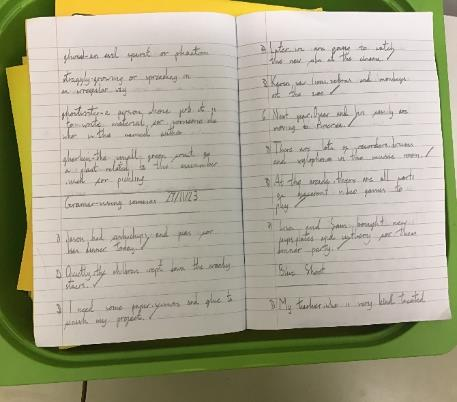 ghoul-an evil spirit or phantom
straggly-growing or spreading in
an irregular way
ghostwriter-a person whose job it is
to write material for someone else
who is the named author
gherkin-the small green fruit of
a plant related to the cucumber
used for pickling
Grammar-using commas 27/11/23
Jason had sandwiches and peas for
his dinner today.
Quietly, the children crept down the creaky
stairs.
3) I need some paper, scissors and glue to
finish my project.
Later, we are going to watch
the new film at the cinema.
saw lions, zebras and monkeys
at the zoo.
Next year, and his family are
moving to America.
There are lots of recorders, drums
and xylophones in the music room.
At the arcade there are all sorts
of different games to
play.
and Sam bought new
cups, plates and cutlery for their
dinner party.
My teacher, who is very kind, treated